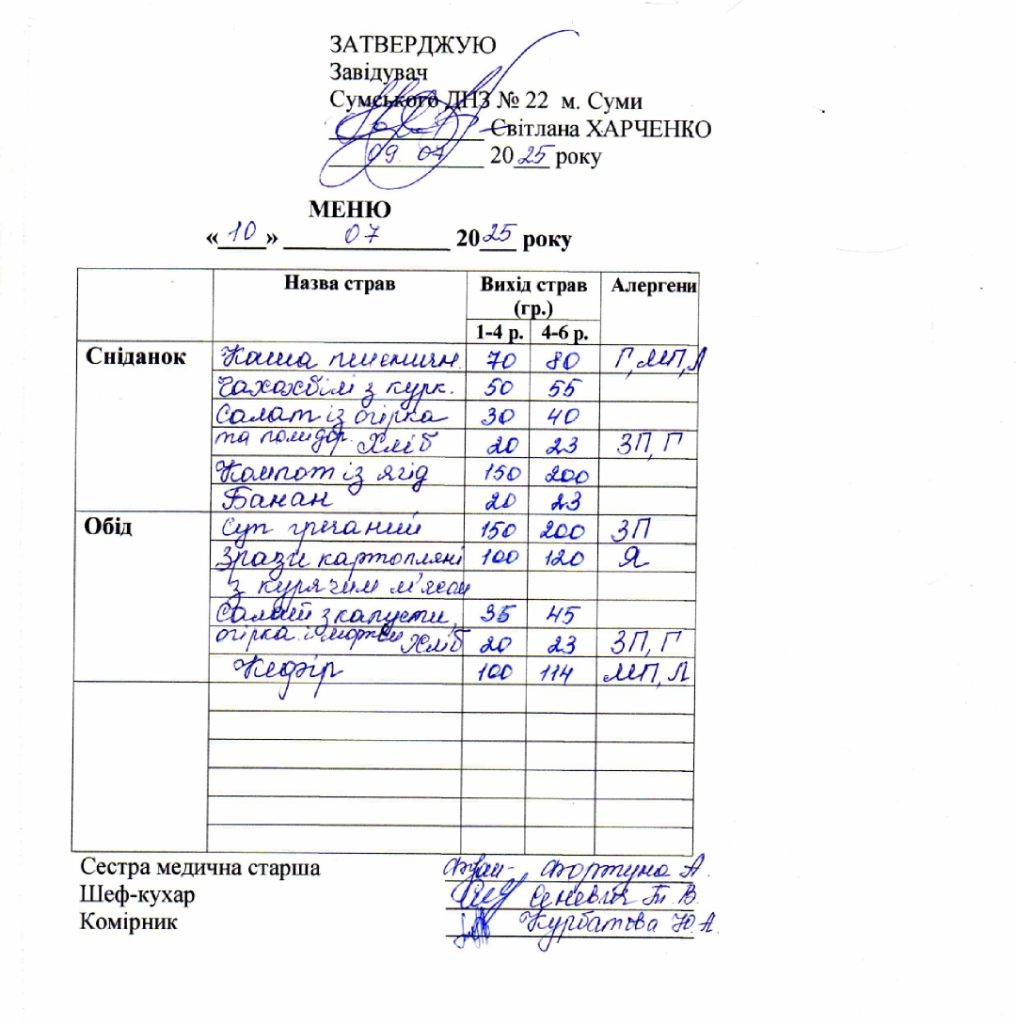 ЗАТВЕРДЖУЮ
Завідувач
Сумського ДНЗ № 22 м. Суми
Світлана ХАРЧЕНКО
09. 07 2025 року
МЕНЮ
«10» 07 2025 року
Назва страв Вихід страв (гр.) Алергени
1-4 р. 4-6 р.
Сніданок Каша пшеничн. 70 80 Г, МП, Л
Чахохбілі з курк. 50 55
Салат із огірка 30 40
та помидор. Хліб 20 23 ЗП, Г
Компот із ягід 150 200
Банан 20 23
Обід Суп гречаний 150 200 ЗП
Зрази картопляні 100 120 Я
з курячим м'ясом
Салат з капусти, 35 45
огірка і моркви Хліб 20 23 ЗП, Г
Кефір 100 114 МП, Л
Сестра медична старша Фортуна А.
Шеф-кухар Т. В.
Комірник Курбатова Ю. А.